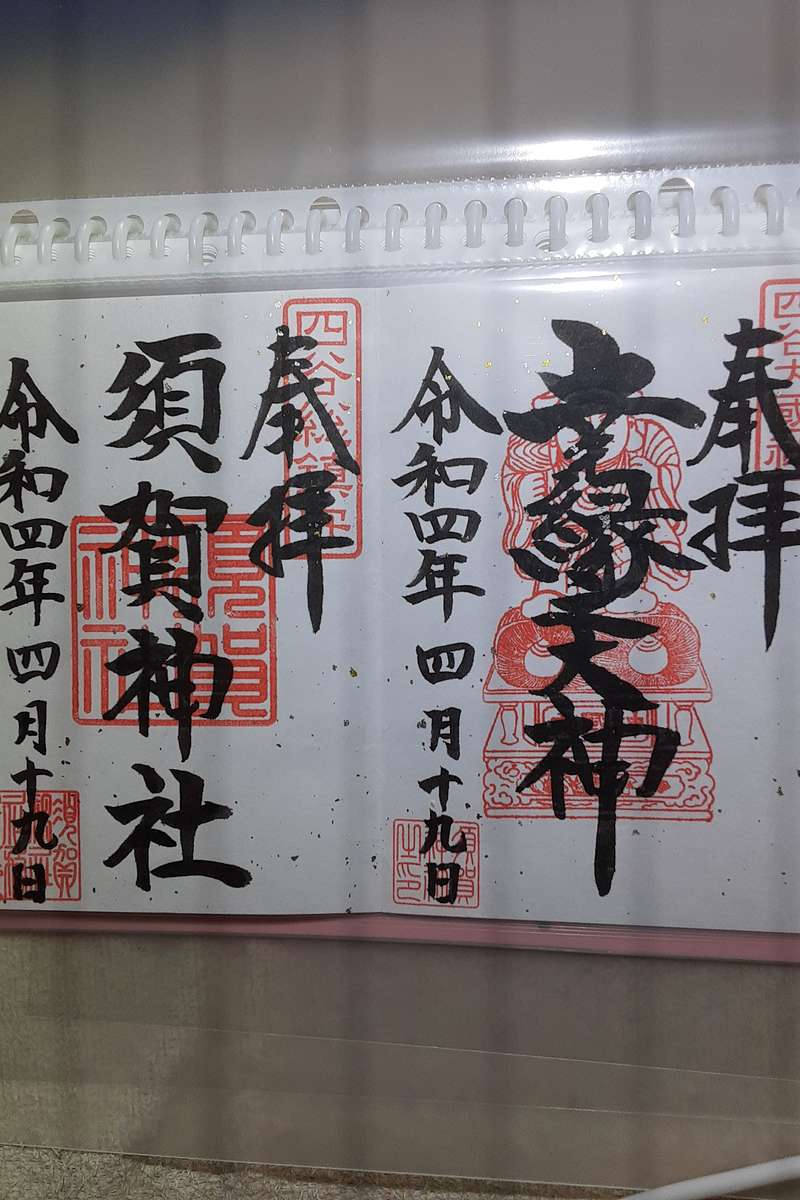 奉拝
幸縁天神
令和四年四月十九日
四谷総鎮守
奉拝
須賀神社
須賀神社
令和四年四月十九日